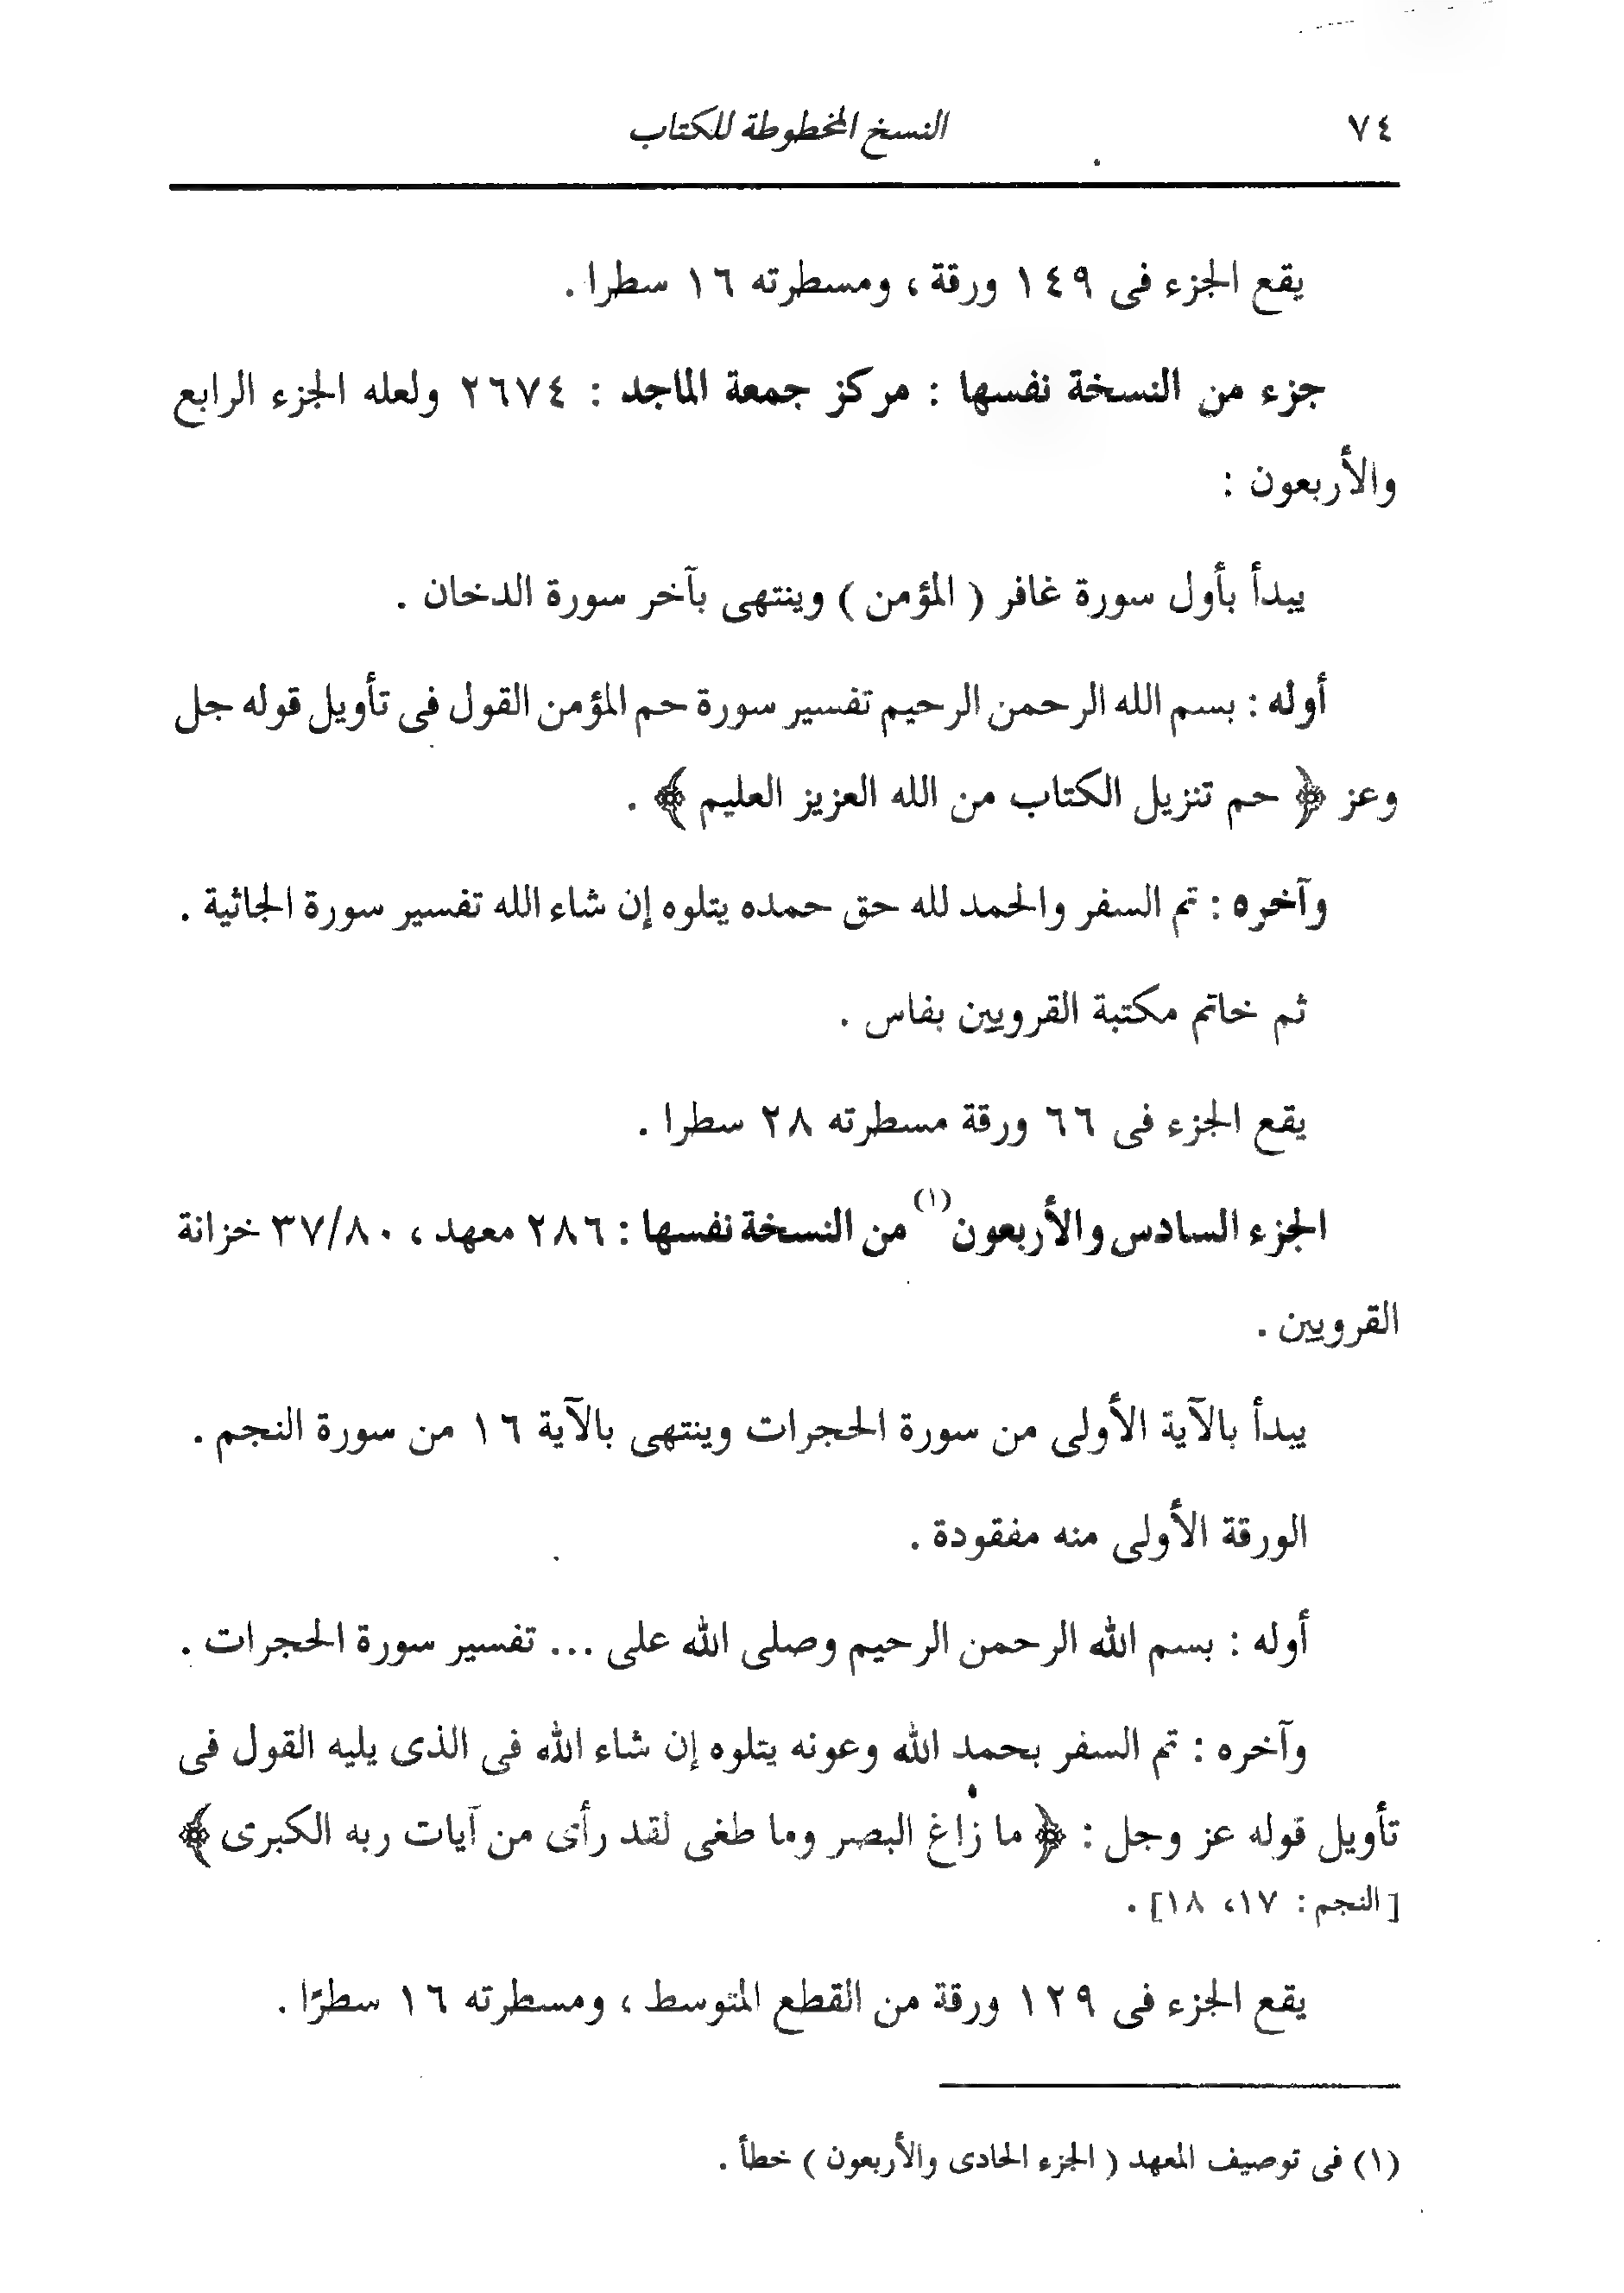 ٧٤
النسخ المخطوطة للكتاب
يقع الجزء فى ١٤٩ ورقة ، ومسطرته ١٦ سطرا .
جزء من النسخة نفسها : مركز جمعة الماجد : ٢٦٧٤ ولعله الجزء الرابع
والأربعون :
يبدأ بأول سورة غافر ( المؤمن ) وينتهى بآخر سورة الدخان .
أوله : بسم الله الرحمن الرحيم تفسير سورة حم المؤمن القول فى تأويل قوله جل
وعز ﴿ حم تنزيل الكتاب من الله العزيز العليم ﴾ .
وآخره : تم السفر والحمد لله حق حمده يتلوه إن شاء الله تفسير سورة الجاثية .
ثم خاتم مكتبة القرويين بفاس .
يقع الجزء فى ٦٦ ورقة مسطرته ٢٨ سطرا .
الجزء السادس والأربعون(١) من النسخة نفسها : ٢٨٦ معهد ، ٣٧/٨٠ خزانة
القرويين .
يبدأ بالآية الأولى من سورة الحجرات وينتهى بالآية ١٦ من سورة النجم .
الورقة الأولى منه مفقودة .
أوله : بسم الله الرحمن الرحيم وصلى الله على ... تفسير سورة الحجرات .
وآخره : تم السفر بحمد الله وعونه يتلوه إن شاء الله فى الذى يليه القول فى
تأويل قوله عز وجل : ﴿ ما زاغ البصر وما طغى لقد رأى من آيات ربه الكبرى ﴾
[النجم : ١٧، ١٨] .
يقع الجزء فى ١٢٩ ورقة من القطع المتوسط ، ومسطرته ١٦ سطرًا .
(١) فى توصيف المعهد ( الجزء الحادى والأربعون ) خطأ .